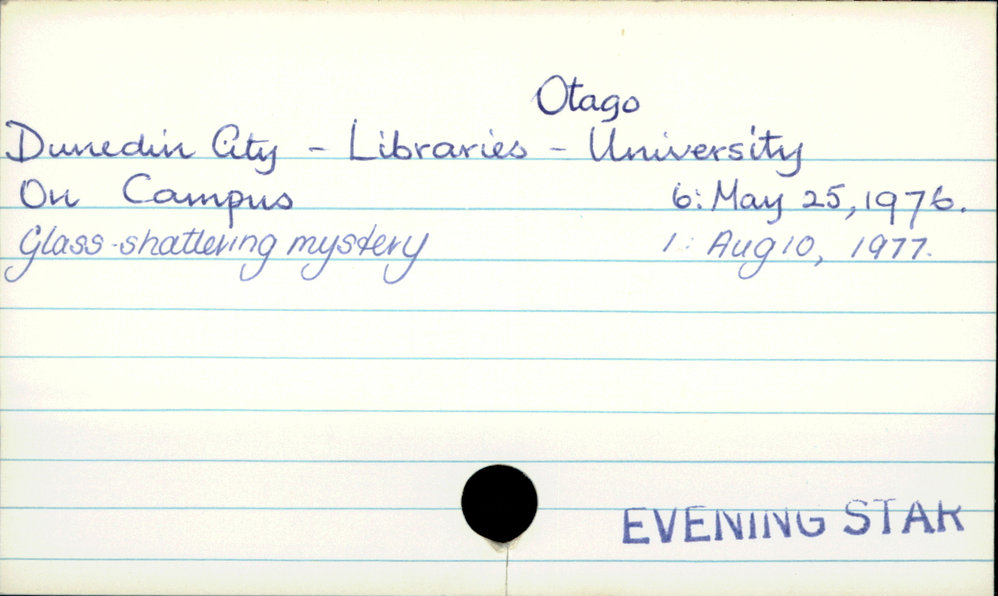 Otago
Dunedin City - Libraries - University
On Campus 6: May 25, 1976.
Glass-shattering mystery 1: Aug 10, 1977.
EVENING STAR